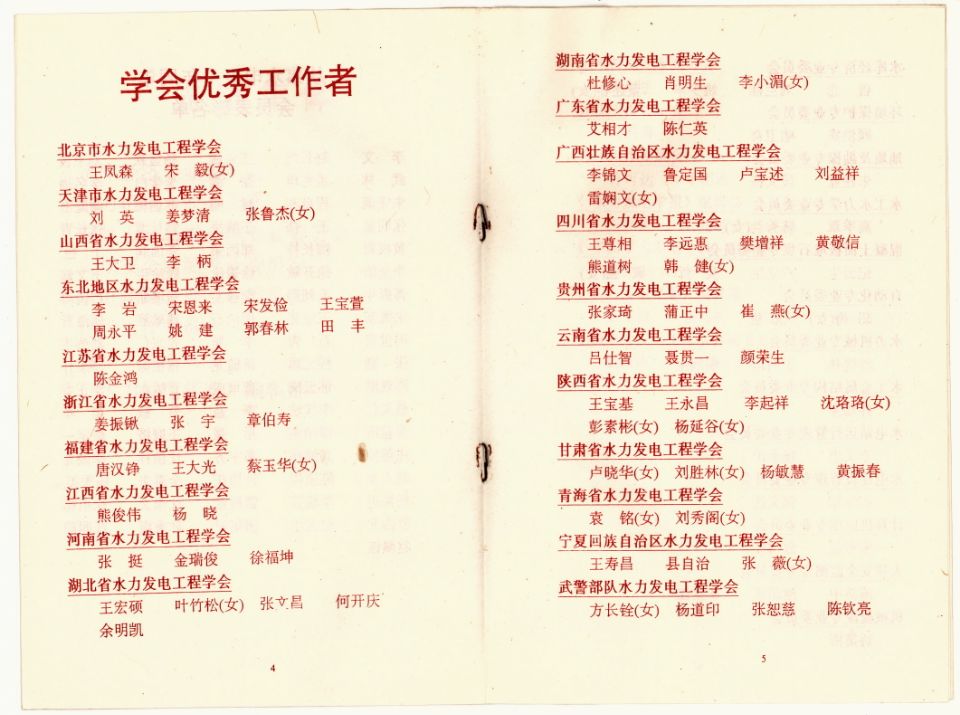 学会优秀工作者
北京市水力发电工程学会
王凤森 宋 毅(女)
天津市水力发电工程学会
刘 英 姜梦清 张鲁杰(女)
山西省水力发电工程学会
王大卫 李 柄
东北地区水力发电工程学会
李 岩 宋恩来 宋发俭 王宝萱
周永平 姚 建 郭春林 田 丰
江苏省水力发电工程学会
陈金鸿
浙江省水力发电工程学会
姜振锹 张 宇 章伯寿
福建省水力发电工程学会
唐汉铮 王大光 蔡玉华(女)
江西省水力发电工程学会
熊俊伟 杨 晓
河南省水力发电工程学会
张 挺 金瑞俊 徐福坤
湖北省水力发电工程学会
王宏硕 叶竹松(女) 张文昌 何开庆
余明凯
4
湖南省水力发电工程学会
杜修心 肖明生 李小湄(女)
广东省水力发电工程学会
艾相才 陈仁英
广西壮族自治区水力发电工程学会
李锦文 鲁定国 卢宝述 刘益祥
雷娴文(女)
四川省水力发电工程学会
王尊相 李远惠 樊增祥 黄敬信
熊道树 韩 健(女)
贵州省水力发电工程学会
张家琦 蒲正中 崔 燕(女)
云南省水力发电工程学会
吕仕智 聂贯一 颜荣生
陕西省水力发电工程学会
王宝基 王永昌 李起祥 沈珞珞(女)
彭素彬(女) 杨延谷(女)
甘肃省水力发电工程学会
卢晓华(女) 刘胜林(女) 杨敏慧 黄振春
青海省水力发电工程学会
袁 铭(女) 刘秀阁(女)
宁夏回族自治区水力发电工程学会
王寿昌 县自治 张 薇(女)
武警部队水力发电工程学会
方长铨(女) 杨道印 张恕慈 陈钦亮
5